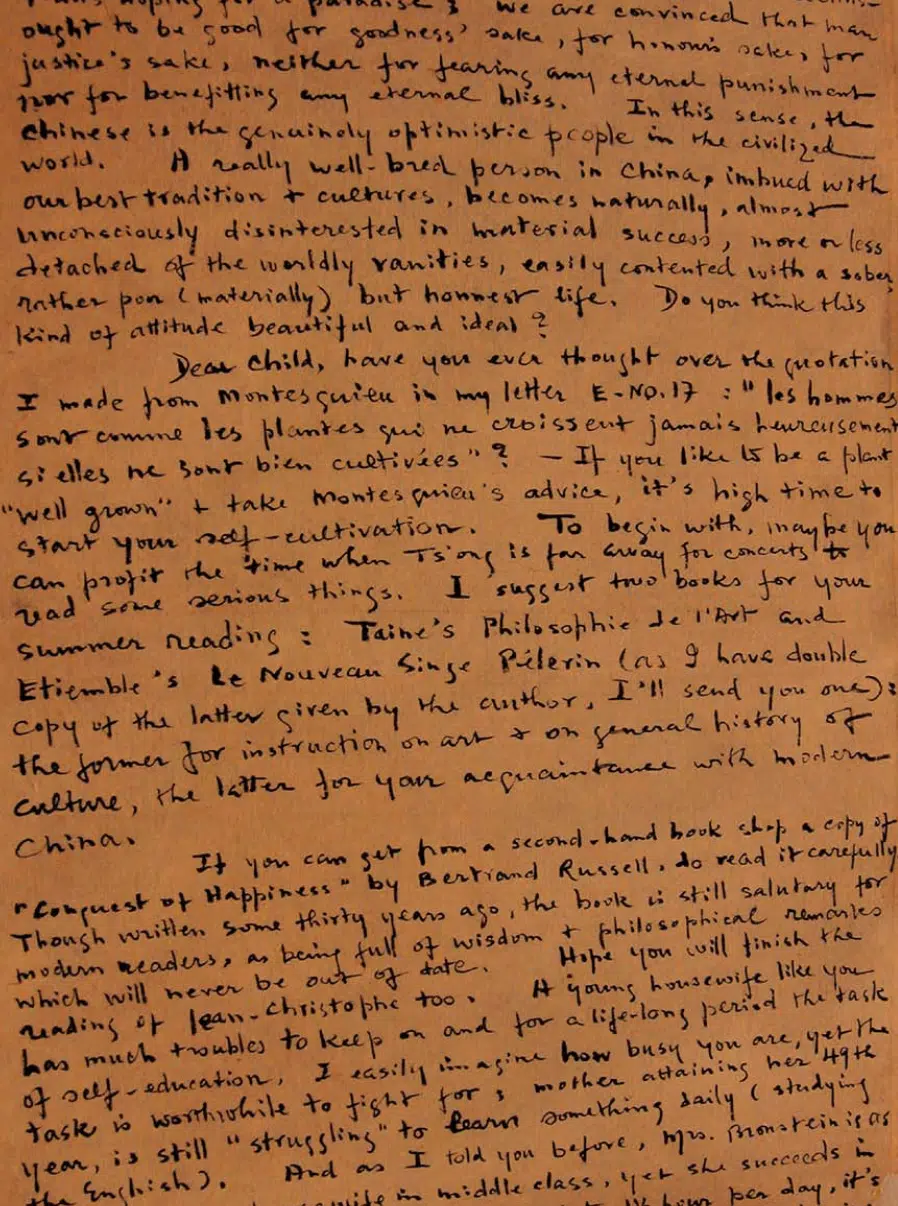 hoping for a paradise ; we are convinced that man
ought to be good for goodness' sake, for honour's sake, for
justice's sake, neither for fearing any eternal punishment
nor for benefitting any eternal bliss. In this sense, the
Chinese is the genuinely optimistic people in the civilized
world. A really well-bred person in China, imbued with
our best tradition + cultures, becomes naturally, almost
unconsciously disinterested in material success, more or less
detached of the worldly vanities, easily contented with a sober,
rather poor (materially) but honnest life. Do you think this
kind of attitude beautiful and ideal ?
Dear Child, have you ever thought over the quotation
I made from Montesquieu in my letter E-No.17 : "les hommes
sont comme les plantes qui ne croissent jamais heureusement
si elles ne sont bien cultivées" ? - If you like to be a plant
"well grown" + take Montesquieu's advice, it's high time to
start your self-cultivation. To begin with, maybe you
can profit the time when Ts'ong is far away for concerts to
read some serious things. I suggest two books for your
summer reading : Taine's Philosophie de l'Art and
Etiemble's Le Nouveau Singe Pélerin (as I have double
copy of the latter given by the author, I'll send you one) :
the former for instruction on art + on general history of
culture, the latter for your acquaintance with modern
China.
If you can get from a second-hand book shop a copy of
"Conquest of Happiness" by Bertrand Russell, do read it carefully
Though written some thirty years ago, the book is still salutary for
modern readers, as being full of wisdom + philosophical remarks
which will never be out of date. Hope you will finish the
reading of Jean-Christophe too. A young housewife like you
has much troubles to keep on and for a life-long period the task
of self-education, I easily imagine how busy you are, yet the
task is worthwhile to fight for ; mother attaining her 49th
year, is still "struggling" to learn something daily (studying
the English). And as I told you before, Mrs. Bronstein is as
in middle class, yet she succeeds in
hour per day, it's